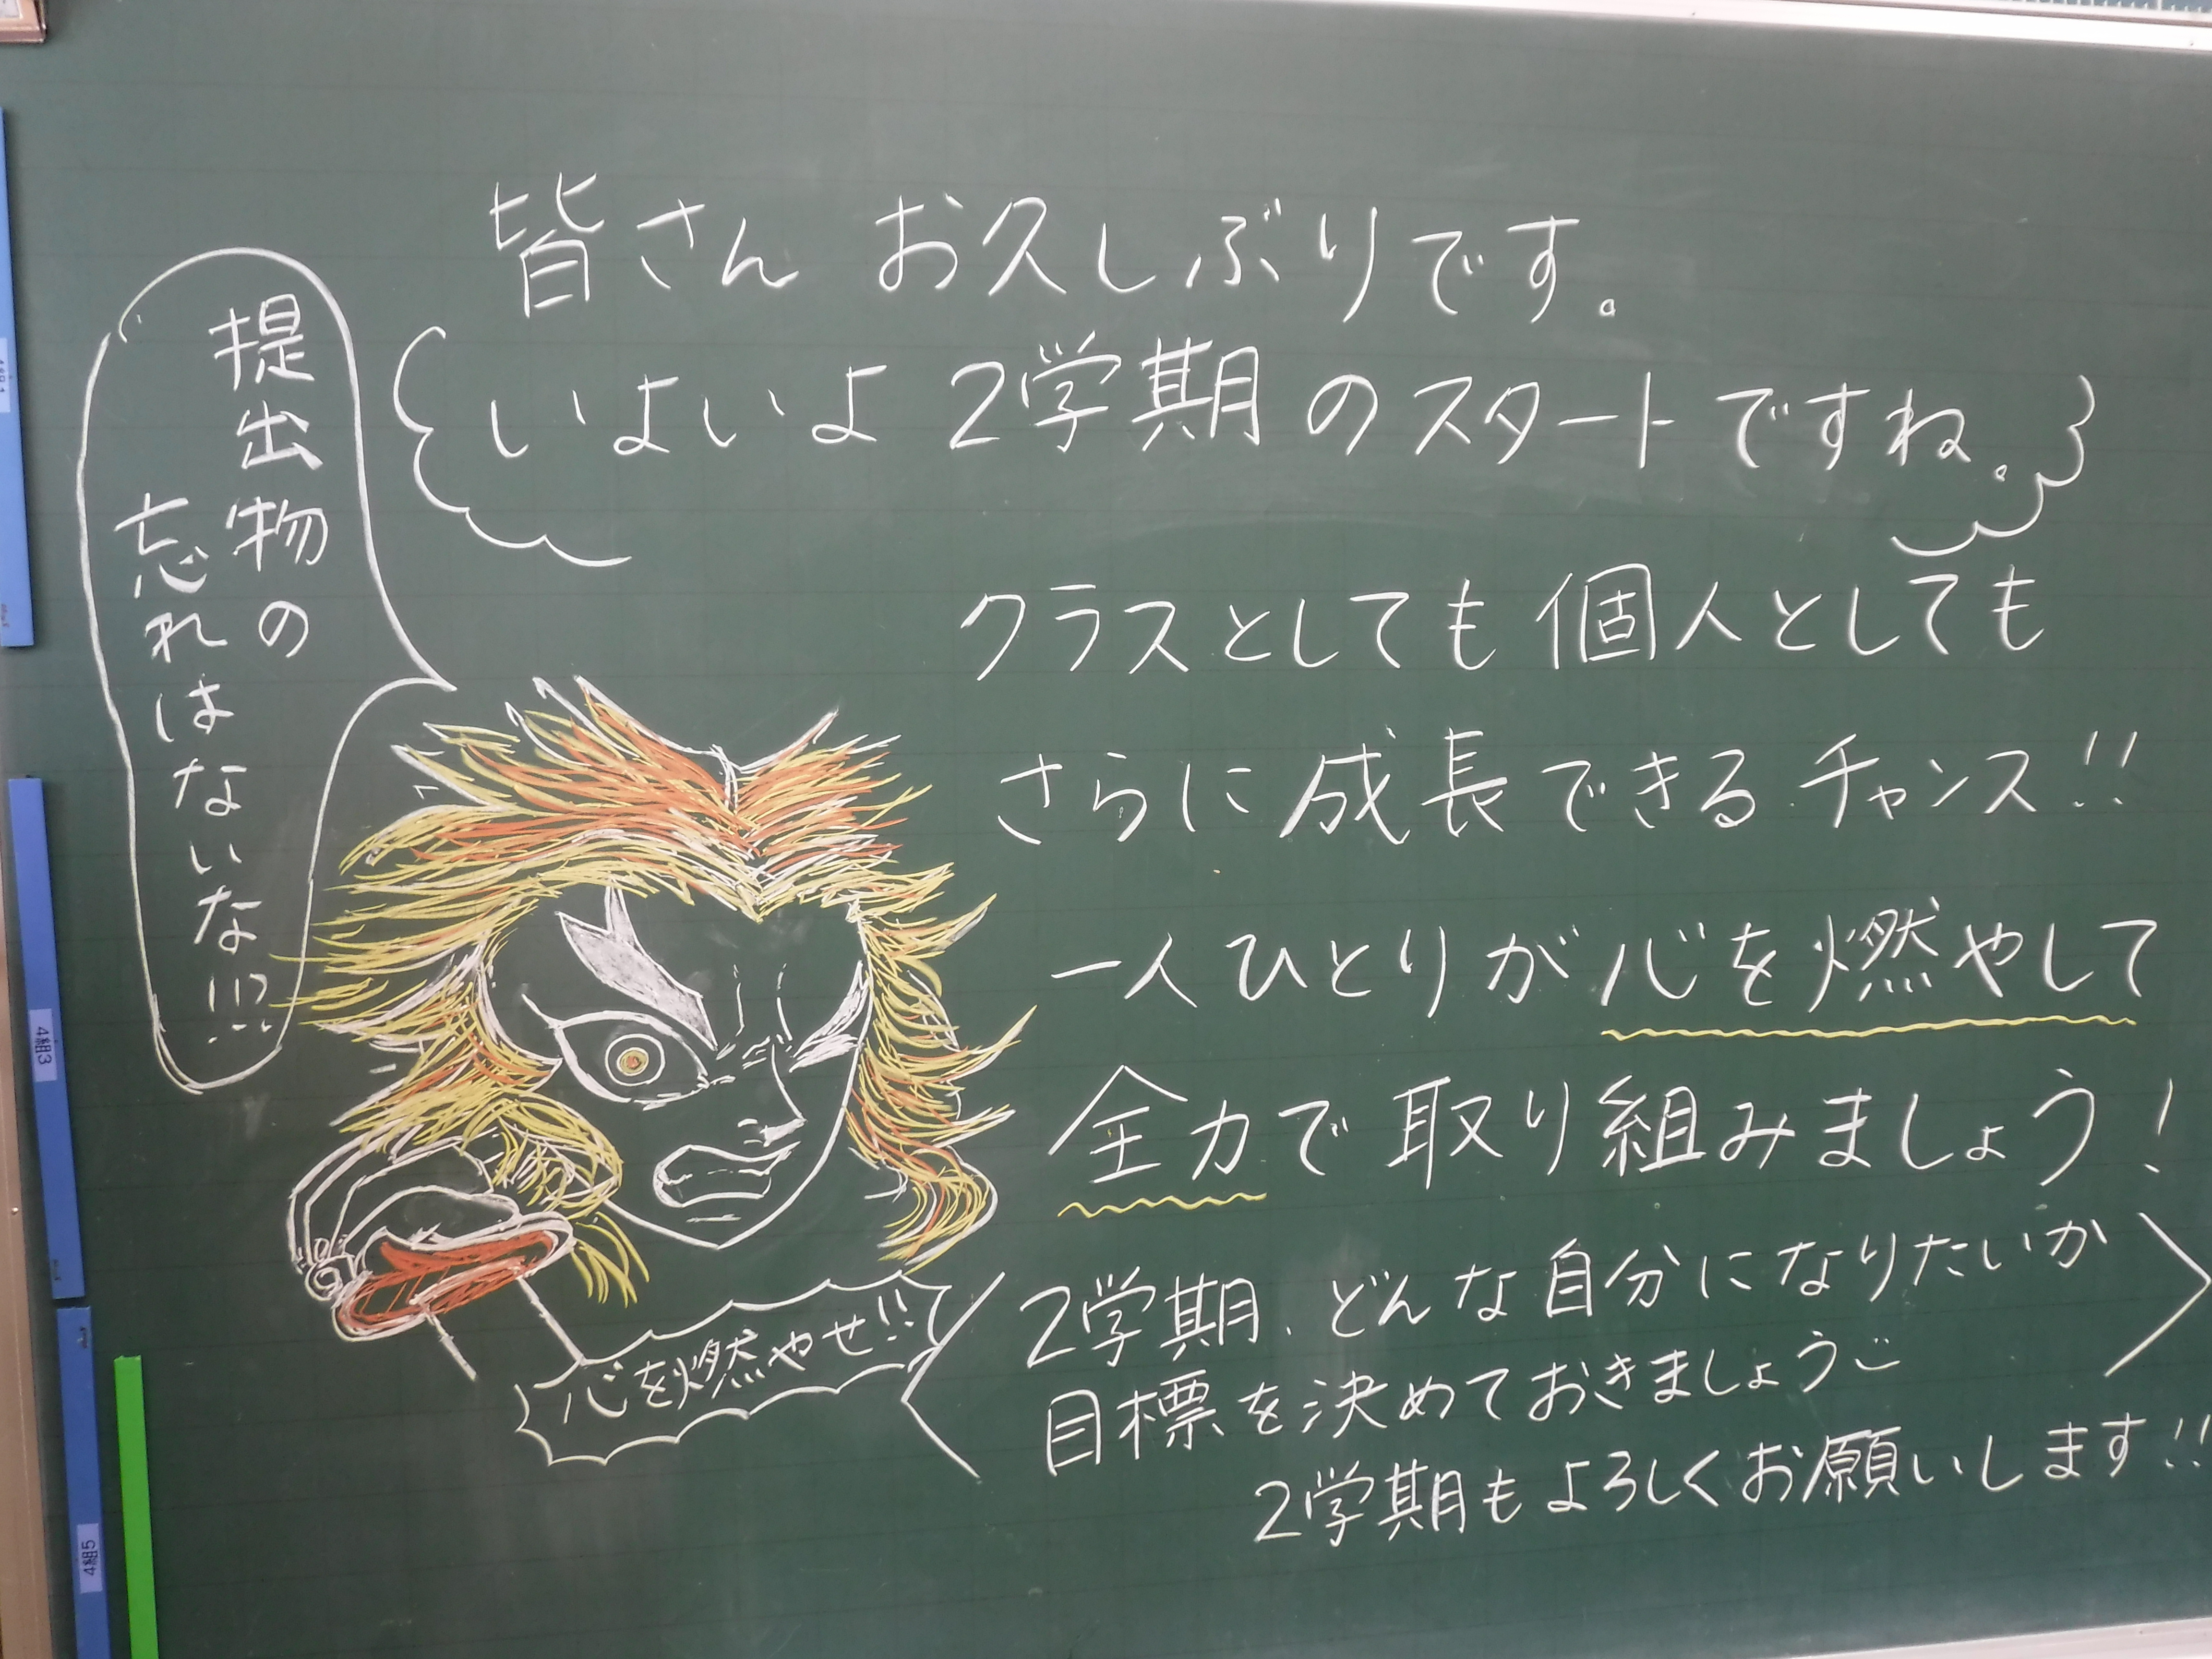 皆さん お久しぶりです。
いよいよ 2学期のスタートですね。
提出物の
忘れはないな!!?
クラスとしても個人としても
さらに成長できるチャンス!!
一人ひとりが心を燃やして
全力で取り組みましょう!
心を燃やせ!!
2学期、どんな自分になりたいか
目標を決めておきましょう
2学期もよろしくお願いします!!
4組3
4組5